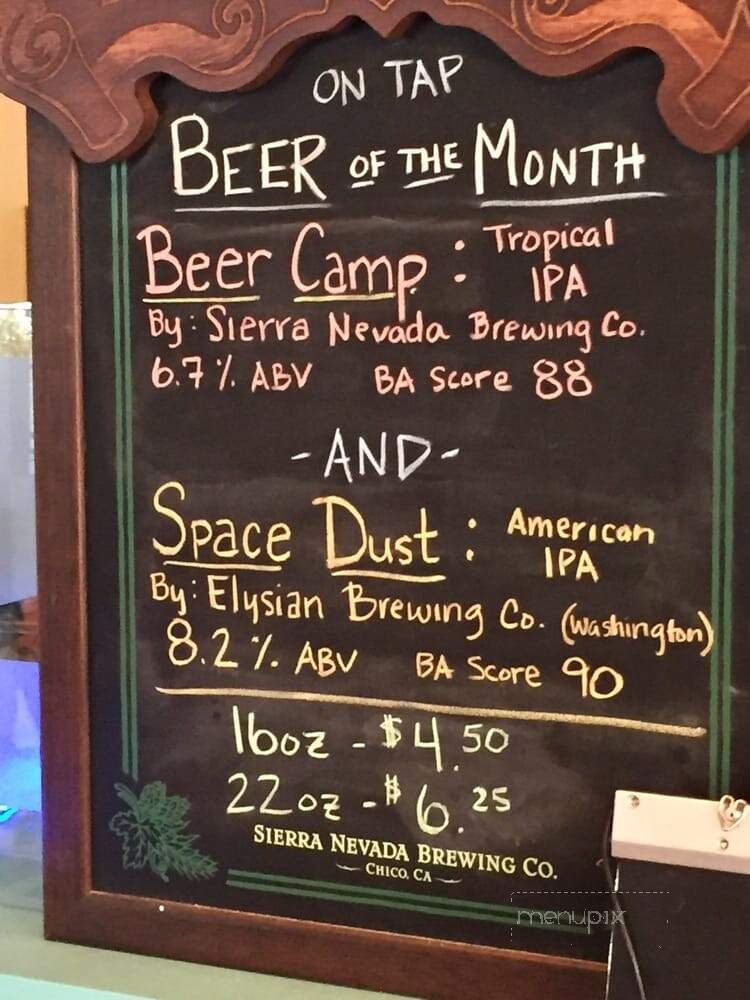 ON TAP
BEER OF THE MONTH
Beer Camp : Tropical IPA
By: Sierra Nevada Brewing Co.
6.7% ABV BA Score 88
-AND-
Space Dust : American IPA
By: Elysian Brewing Co. (Washington)
8.2% ABV BA Score 90
16oz - $4.50
22oz - $6.25
SIERRA NEVADA BREWING CO.
CHICO, CA
menupix